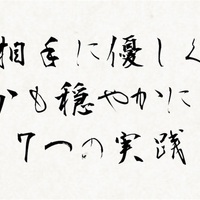 相手に優しく
かも穏やかに
7つの実践